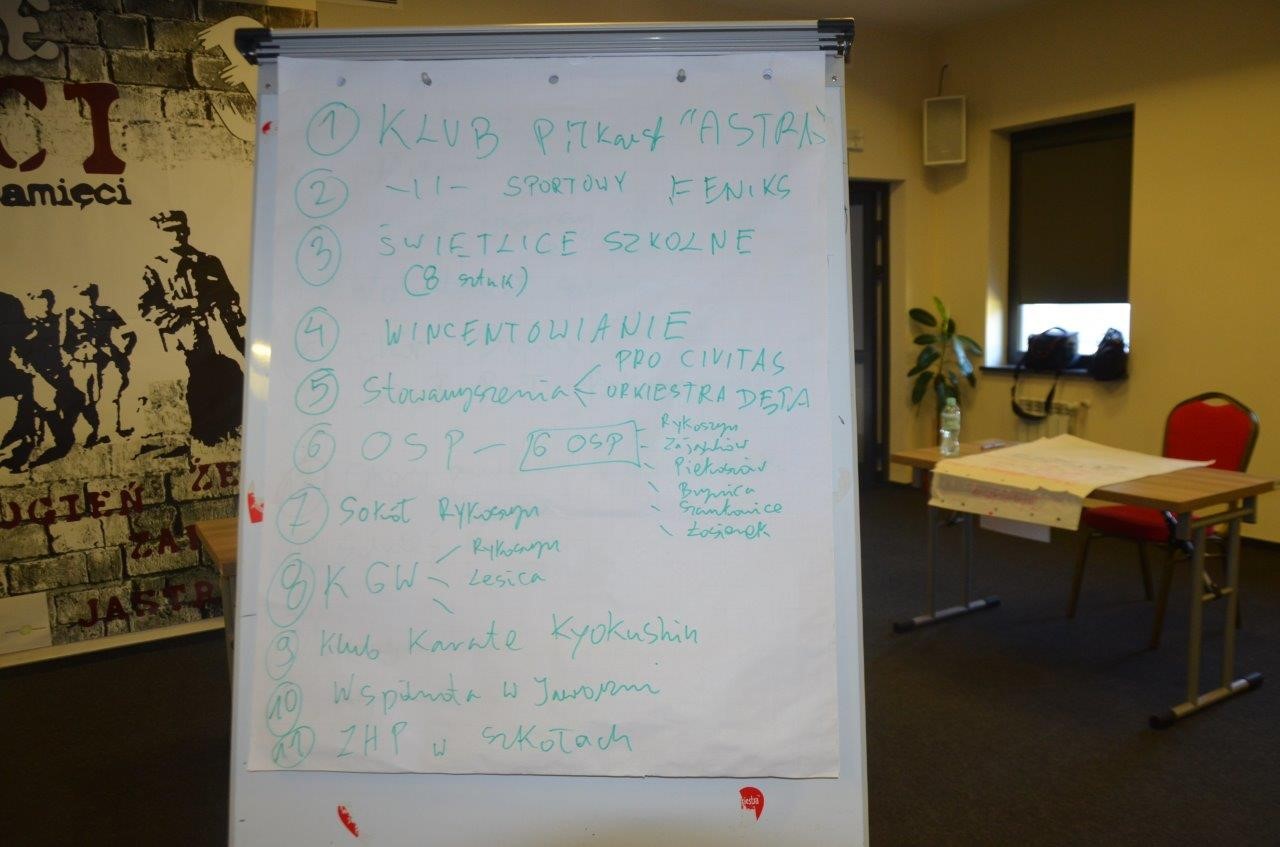 1 KLUB Piłkarsk "ASTRA"
2 -11- SPORTOWY FENIKS
3 ŚWIETLICE SZKOLNE
(8 sztuk)
4 WINCENTOWIANIE
5 Stowarzyszenia PRO CIVITAS
ORKIESTRA DĘTA
6 OSP - 6 OSP
Rykoszyn
Zajączków
Piekoszów
Brynica
Szczukowice
Łosienek
7 Sokół Rykoszyn
8 KGW
Rykoszyn
Lesica
9 Klub Karate Kyokushin
10 Wspólnota w Jaworzni
11 ZHP w szkołach
CI
amięci
OGIEŃ
ŻE
JASTR